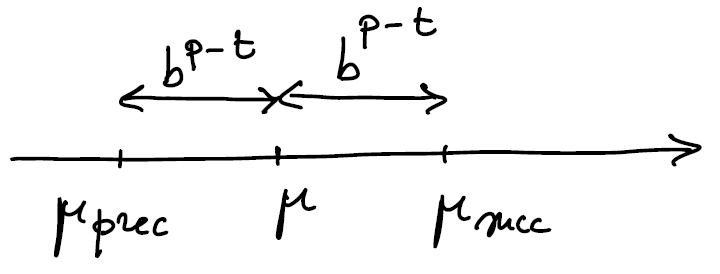 b^{p-t} b^{p-t}
μ_{prec} μ μ_{succ}